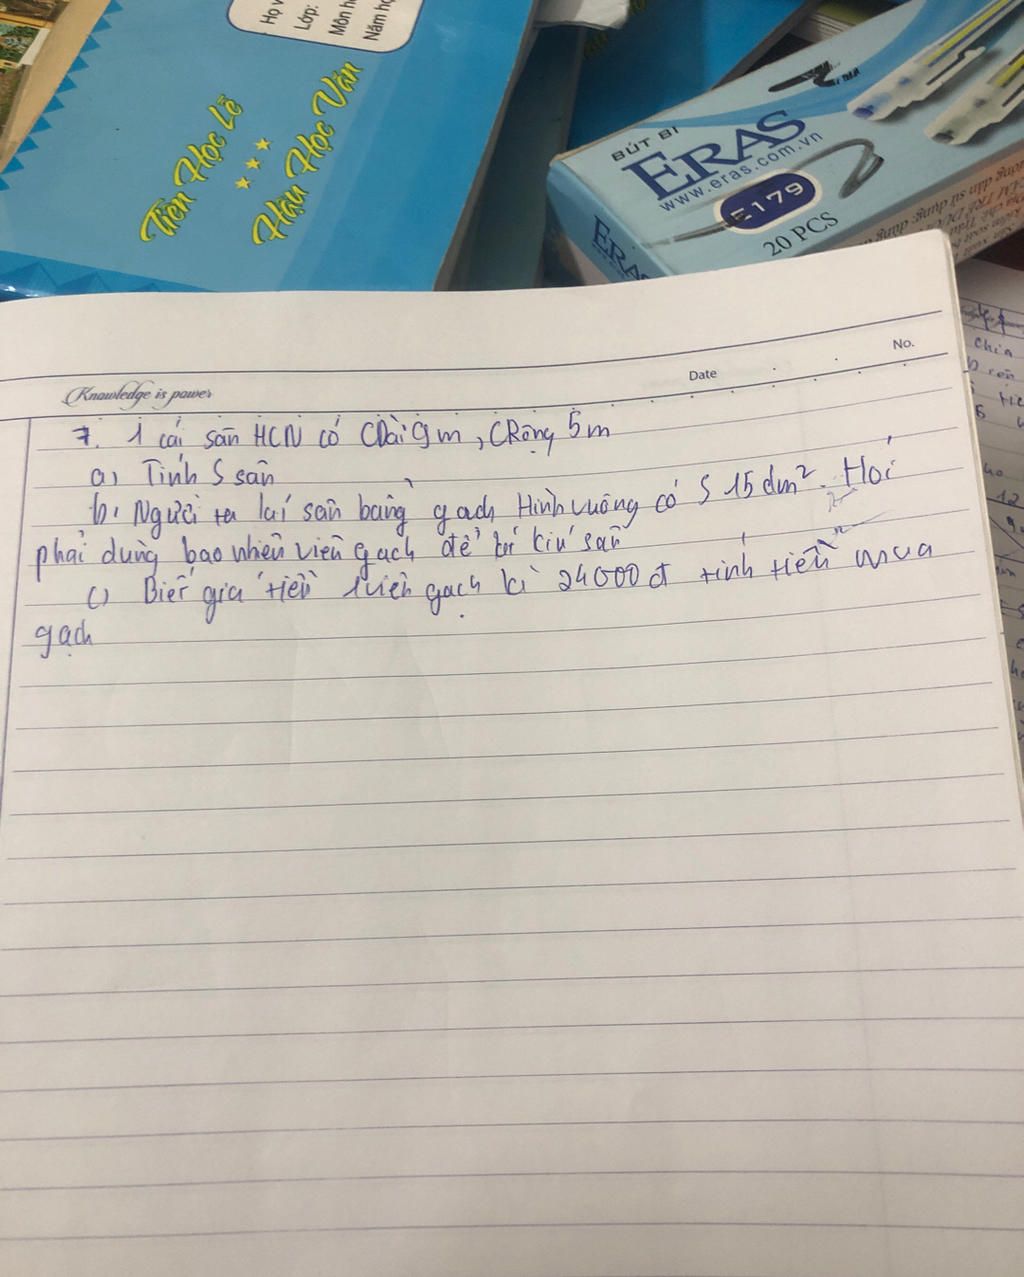 Họ v
Lớp:
Môn h
Năm họ
Tiên Học Lễ
Hậu Học Văn
BÚT BI
ERAS
www.eras.com.vn
E179
20 PCS
ERAS
No.
Date
Knowledge is power
7. 1 cái sân HCN có CDài 9m, CRộng 5m
a) Tính S sân
b, Người ta lát sân bằng gạch Hình vuông có S 15dm². Hỏi
phải dùng bao nhiêu viên gạch để kín sân
c) Biết giá tiền 1 viên gạch là 24000đ tính tiền mua
gạch
chia